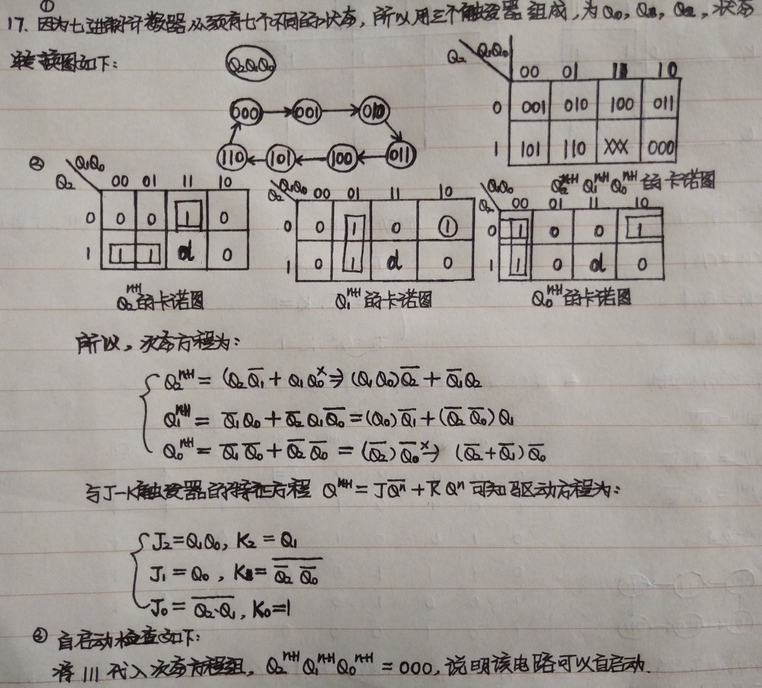 ①
17. 因为七进制计数器必须有七个不同的状态，所以用三个触发器组成，为Q₀，Q₁，Q₂，状态
转换图如下：
Q₂Q₁Q₀
000 → 001 → 010
110 ← 101 ← 100 ← 011
Q₂ Q₁Q₀ 00 01 11 10
0 001 010 100 011
1 101 110 XXX 000
Q₂ⁿ⁺¹ Q₁ⁿ⁺¹ Q₀ⁿ⁺¹ 的卡诺图
②
Q₂ Q₁Q₀ 00 01 11 10
0 0 0 1 0
1 1 1 d 0
Q₂ⁿ⁺¹的卡诺图
Q₂ Q₁Q₀ 00 01 11 10
0 0 1 0 1
1 0 1 d 0
Q₁ⁿ⁺¹的卡诺图
Q₂ Q₁Q₀ 00 01 11 10
0 1 0 0 1
1 1 0 d 0
Q₀ⁿ⁺¹的卡诺图
所以，次态方程为：
Q₂ⁿ⁺¹ = (Q₂Q̅₁ + Q₁Q₀ˣ ⇒ (Q₁Q₀)Q̅₂ + Q̅₁Q₂
Q₁ⁿ⁺¹ = Q̅₁Q₀ + Q̅₂Q₁Q̅₀ = (Q₀)Q̅₁ + (Q̅₂ Q̅₀)Q₁
Q₀ⁿ⁺¹ = Q̅₁ Q̅₀ + Q̅₂ Q̅₀ = (Q̅₂) Q̅₀ˣ ⇒ (Q̅₂+Q̅₁)Q̅₀
与J-K触发器的特征方程 Qⁿ⁺¹ = JQ̅ⁿ + K̅Qⁿ 可知驱动方程为：
J₂=Q₁Q₀, K₂ = Q₁
J₁ = Q₀, K₁ = \overline{Q̅₂ Q̅₀}
J₀ = \overline{Q₂·Q₁}, K₀=1
③ 自启动检查如下：
将111代入次态方程组，Q₂ⁿ⁺¹ Q₁ⁿ⁺¹ Q₀ⁿ⁺¹ = 000，说明该电路可以自启动.